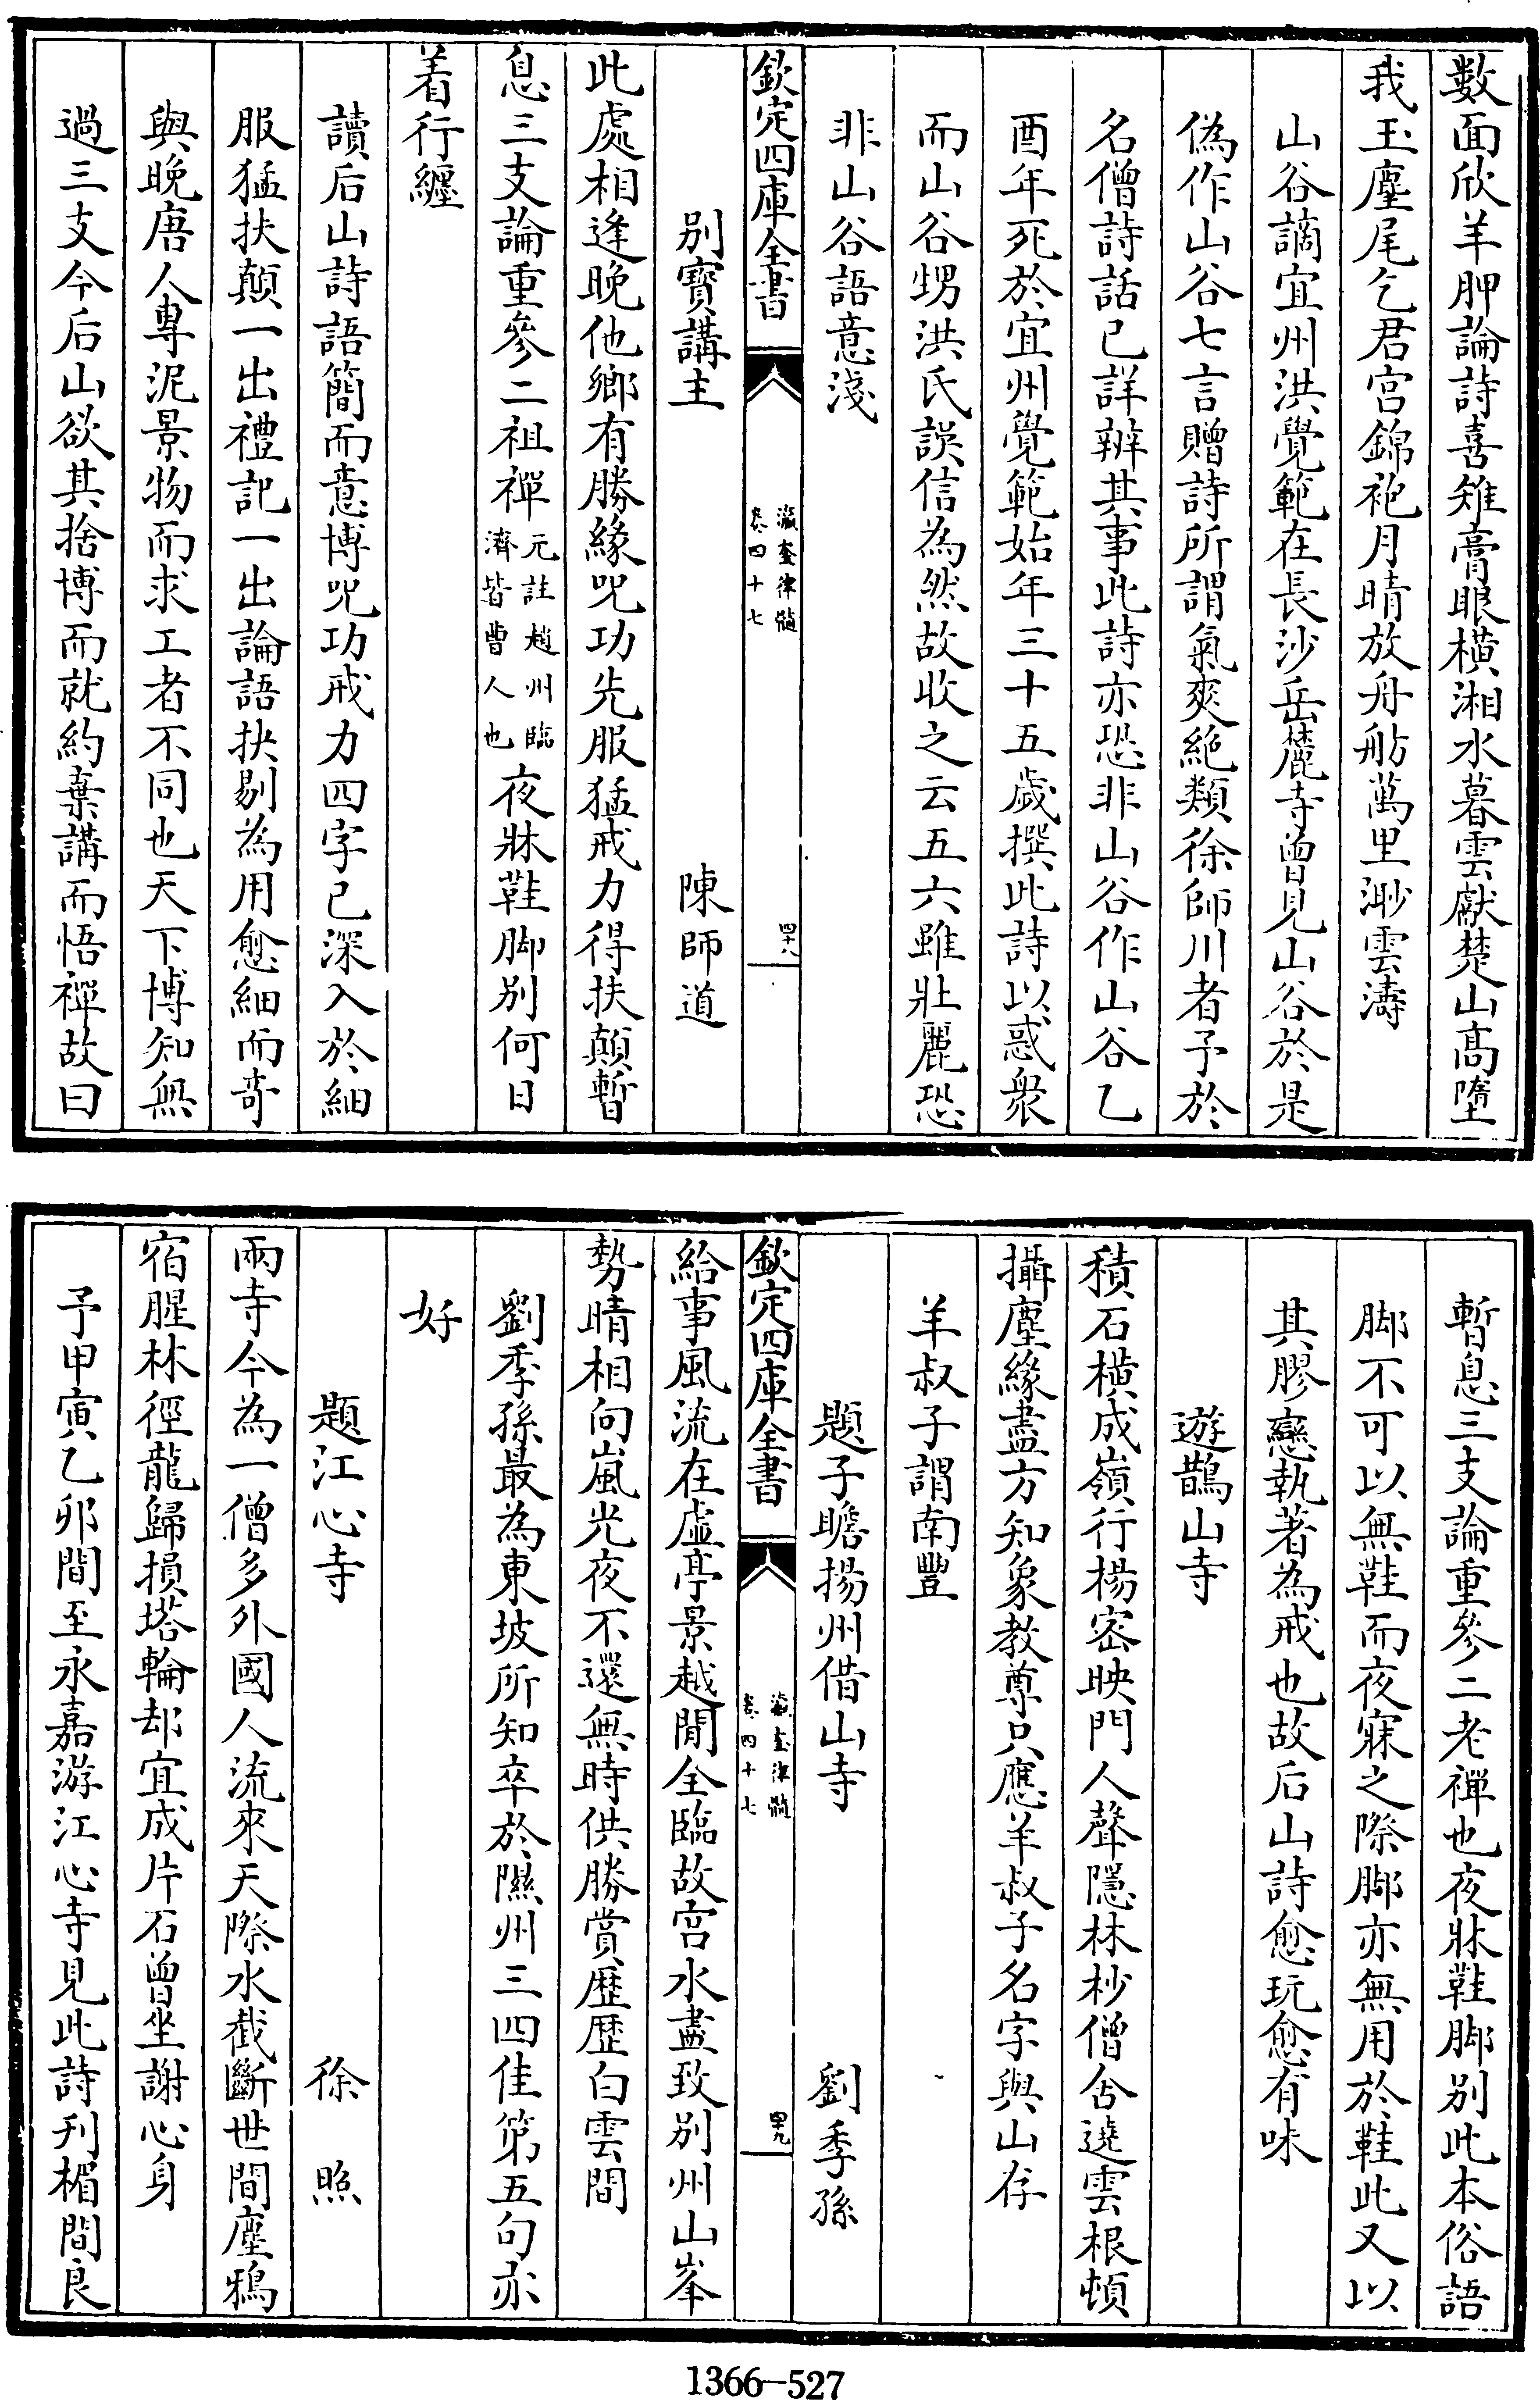 數面欣羊胛論詩喜雉膏眼横湘水暮雲獻楚山髙墮
我玉麈尾乞君宫錦袍月晴放舟舫萬里渺雲濤
山谷謫宜州洪覺範在長沙岳麓寺曾見山谷於是
偽作山谷七言贈詩所謂氣爽絶類徐師川者予於
名僧詩話已詳辨其事此詩亦恐非山谷作山谷乙
酉年死於宜州覺範始年三十五歲撰此詩以惑衆
而山谷甥洪氏誤信為然故收之云五六雖壯麗恐
非山谷語意淺
欽定四庫全書
瀛奎律髓
卷四十七
四十八
别寳講主 陳師道
此處相逢晚他鄉有勝緣咒功先服猛戒力得扶顛暫
息三支論重參二祖禪元註趙州臨濟皆曹人也夜牀鞋脚别何日
着行纏
讀后山詩語簡而意博咒功戒力四字已深入於細
服猛扶顛一出禮記一出論語抉剔為用愈細而竒
與晚唐人專泥景物而求工者不同也天下博知無
過三支今后山欲其捨博而就約棄講而悟禪故曰
暫息三支論重參二老禪也夜牀鞋脚别此本俗語
脚不可以無鞋而夜寐之際脚亦無用於鞋此又以
其膠戀執著為戒也故后山詩愈玩愈有味
遊鵲山寺
積石横成嶺行楊宻映門人聲隱林杪僧舍遶雲根頓
攝塵緣盡方知象教尊只應羊叔子名字與山存
羊叔子謂南豐
題子瞻揚州借山寺 劉季孫
欽定四庫全書
瀛奎律髓
卷四十七
四十九
給事風流在虚亭景越閒全臨故宫水盡致别州山峯
勢晴相向嵐光夜不還無時供勝賞歴歴白雲間
劉季孫最為東坡所知卒於隰州三四佳第五句亦
好
題江心寺 徐照
兩寺今為一僧多外國人流來天際水截斷世間塵鴉
宿腥林徑龍歸損塔輪却宜成片石曾坐謝心身
予甲寅乙卯間至永嘉游江心寺見此詩刋楣間良
1366—527